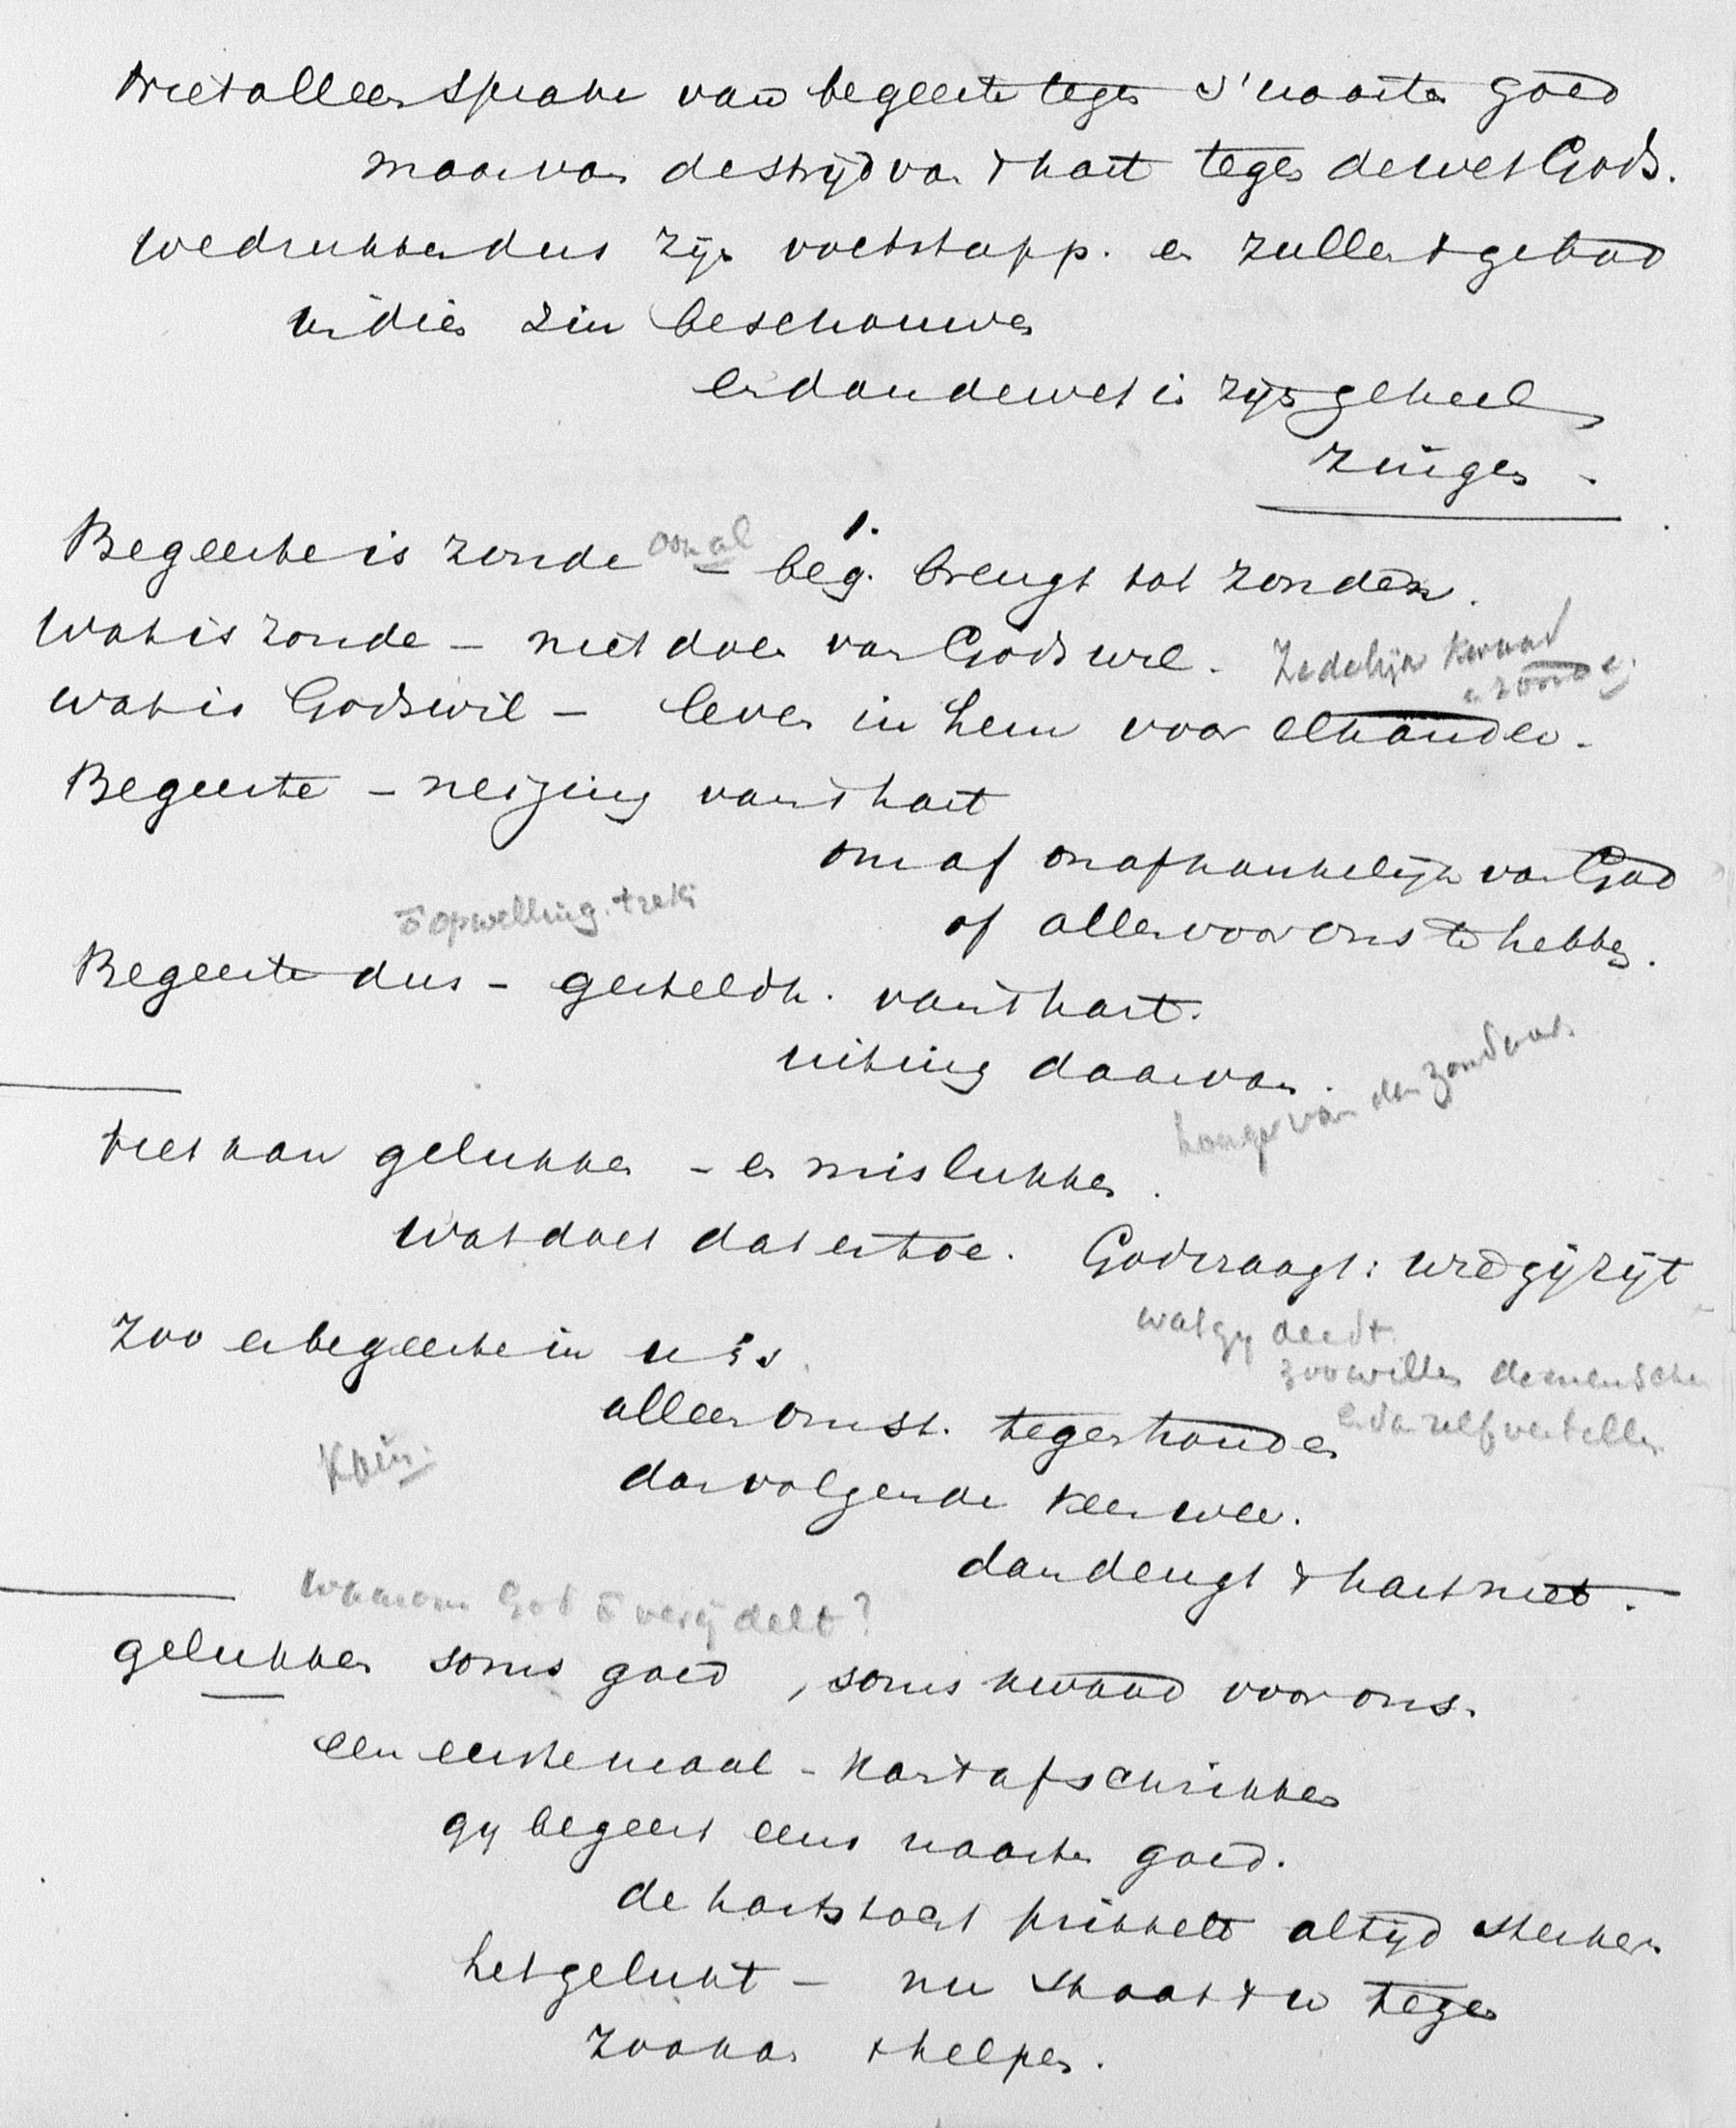 niet alleen sprake van begeerte tegen 's naasten goed
maar van de strijd van 't hart tegen de wet Gods.
we drukken dus zijn voetstapp. en zullen 't gebod
in dien zin beschouwen
en dan de wet in zijn geheel
zingen.
1.
Begeerte is zonde ook al beg. brengt tot zonden.
Wat is zonde – niet doen van Gods wil. Zedelijk kwaad
en zonde
wat is Gods wil – leven in hem voor elkander.
Begeerte – neiging van 't hart
om af onafhankelijk van God
of alles voor ons te hebben.
opwelling. trek
Begeerte dus – gesteldh. van 't hart.
uiting daarvan.
honger van den zondaar.
Het kan gelukken – en mislukken.
Wat doet dat er toe. God vraagt: wie gij zijt
wat gy deedt
Zoo er begeerte in u is
zoo willen de menschen
alleen omst. tegenhouden
en dan zelf vertellen
Kaïn.
dan volgende keer weer.
dan deugt 't hart niet.
Waarom God verijdelt?
gelukken soms goed, soms kwaad voor ons.
een eerste maal – kan 't afschrikken
gy begeert eens naasten goed.
de hartstocht prikkelt altijd sterker
het gelukt – nu staat 't u tegen
zoo kan 't helpen.